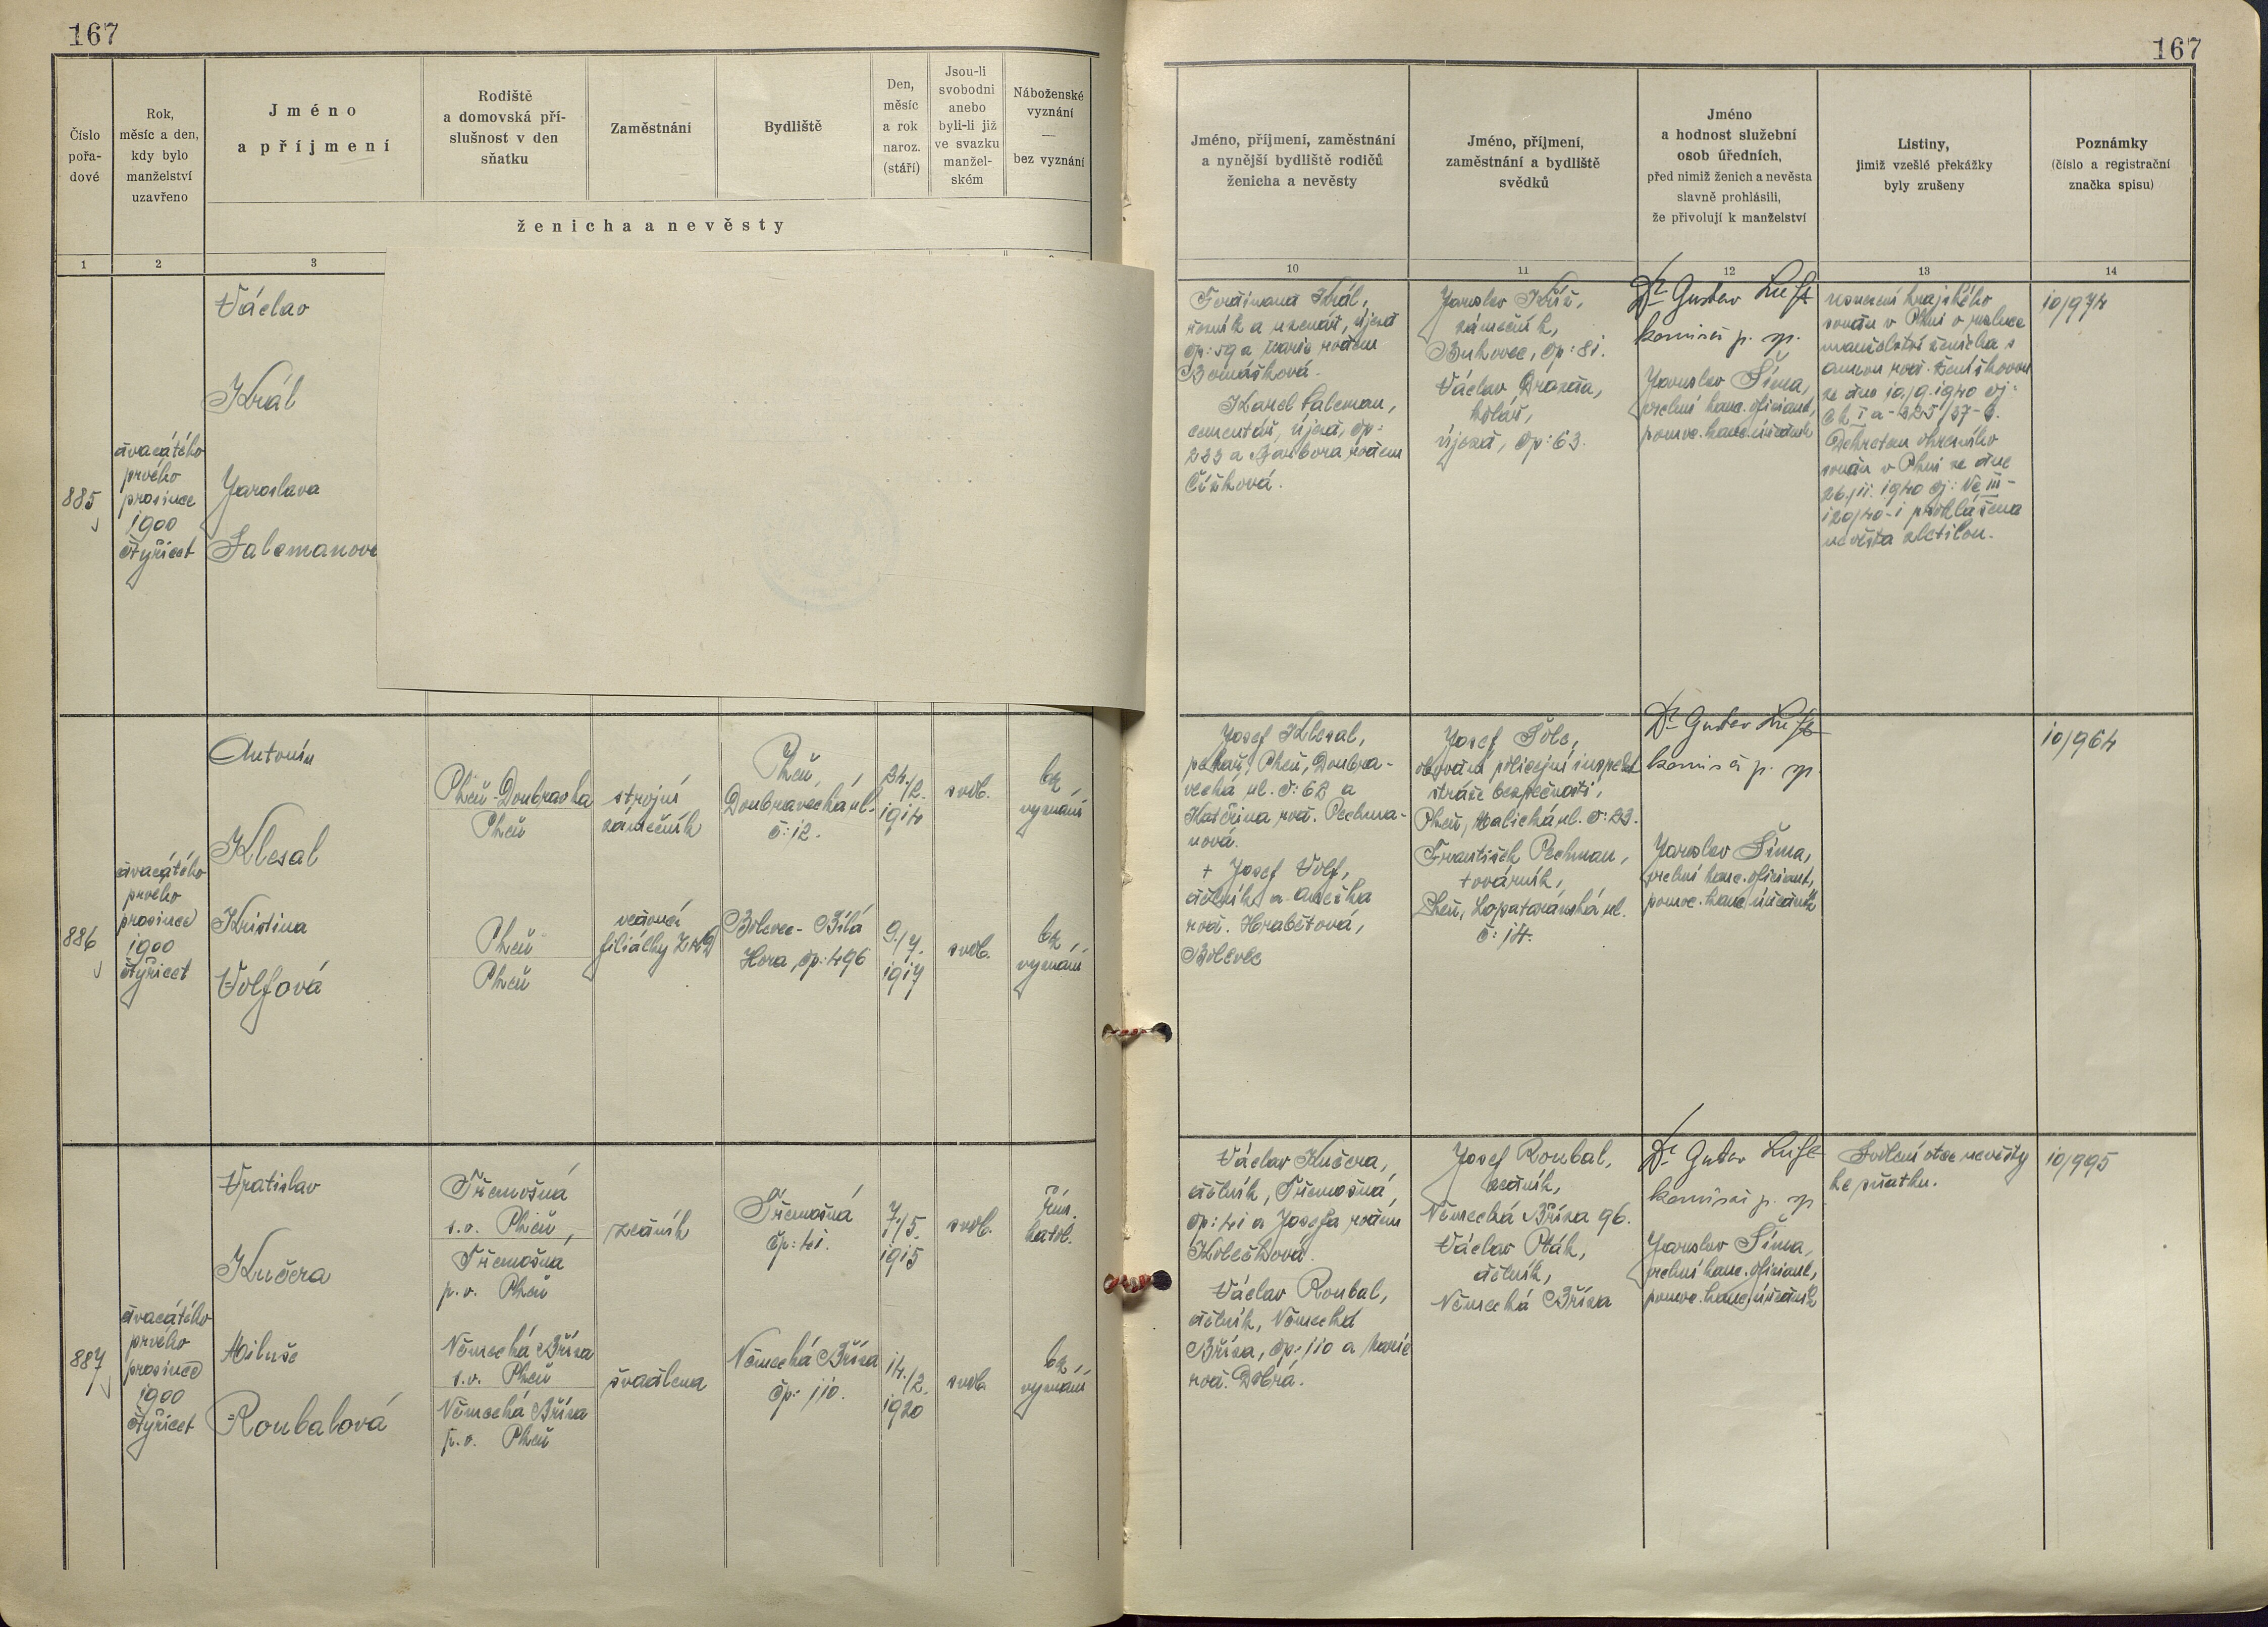 167
167
Číslo
pořa-
dové
Rok,
měsíc a den,
kdy bylo
manželství
uzavřeno
Jméno
a příjmení
Rodiště
a domovská pří-
slušnost v den
sňatku
Zaměstnání
Bydliště
Den,
měsíc
a rok
naroz.
(stáří)
Jsou-li
svobodni
anebo
byli-li již
ve svazku
manžel-
ském
Náboženské
vyznání
—
bez vyznání
ženicha a nevěsty
Jméno, příjmení, zaměstnání
a nynější bydliště rodičů
ženicha a nevěsty
Jméno, příjmení,
zaměstnání a bydliště
svědků
Jméno
a hodnost služební
osob úředních,
před nimiž ženich a nevěsta
slavně prohlásili,
že přivolují k manželství
Listiny,
jimiž vzešlé překážky
byly zrušeny
Poznámky
(číslo a registrační
značka spisu)
1
2
3
10
11
12
13
14
885
dvacátého
prvého
prosince
1900
čtyřicet
Václav
Král
Jaroslava
Salemanov
Ferdinand Král,
řezník a uzenář, Újezd
čp: 59 a Marie rodem
Karel Saleman,
cementář, Újezd, čp:
233 a Barbora rodem
Čížková.
Jaroslav Kříž,
zámečník,
Bukovec, čp: 81.
Václav Brazda,
kolář,
Újezd, čp: 63.
Dr Gustav
komisař p. sp.
Jaroslav Šíma,
pomoc. kanc. úředník
usnesení krajského
soudu v Plzni o rozluce
manželství ženicha s
ze dne 10./9. 1940 čj:
Ck I a - 325/37-6.
Dekretem okresního
soudu v Plzni ze dne
26./11. 1940 čj: Nc III-
120/40-1 prohlášena
nevěsta zletilou.
10/974
886
dvacátého
prvého
prosince
1900
čtyřicet
Antonín
Klesal
Kristina
Volfová
Plzeň-Doubravka
Plzeň
Plzeň
Plzeň
strojní
zámečník
vedoucí
filiálky
Plzeň,
Doubravecká ul.
č: 12.
Bolevec - Bílá
Hora čp: 496
24./2.
1914
9./7.
1917
svob.
svob.
bez
vyznání
bez
vyznání
Josef Klesal,
pekař, Plzeň, Doubra-
vecká ul. č: 62 a
Kateřina roz. Pechma-
nová.
+ Josef Volf,
dělník a Anežka
roz. Hrabětová,
Bolevec
Josef Šole,
obvodní policejní inspekt.
stráže bezpečnosti,
Plzeň, Malická ul. č: 23.
František Pechman,
továrník,
Plzeň, Lopatárenská ul.
č: 14.
Dr Gustav
komisař p. sp.
Jaroslav Šíma,
pomoc. kanc. úředník
10/964
887
dvacátého
prvého
prosince
1900
čtyřicet
Vratislav
Kučera
Miluše
Roubalová
Třemošná
s.o. Plzeň,
Třemošná
p.o. Plzeň
Německá Bříza
s.o. Plzeň
Německá Bříza
p.o. Plzeň
zedník
švadlena
Třemošná
čp: 41.
Německá Bříza
čp: 110.
7./5.
1915
14./2.
1920
svob.
svob.
řím.
katol.
bez
vyznání
Václav Kučera,
dělník, Třemošná,
čp: 41 a Josefa rodem
Kolečková.
Václav Roubal,
dělník, Německá
Bříza, čp: 110 a Marie
roz. Dobrá.
Josef Roubal,
zedník,
Německá Bříza 96.
Václav Pták,
dělník,
Německá Bříza
Dr Gustav
komisař p. sp.
Jaroslav Šíma,
pomoc. kanc. úředník
Svolení otce nevěsty
ke sňatku.
10/995